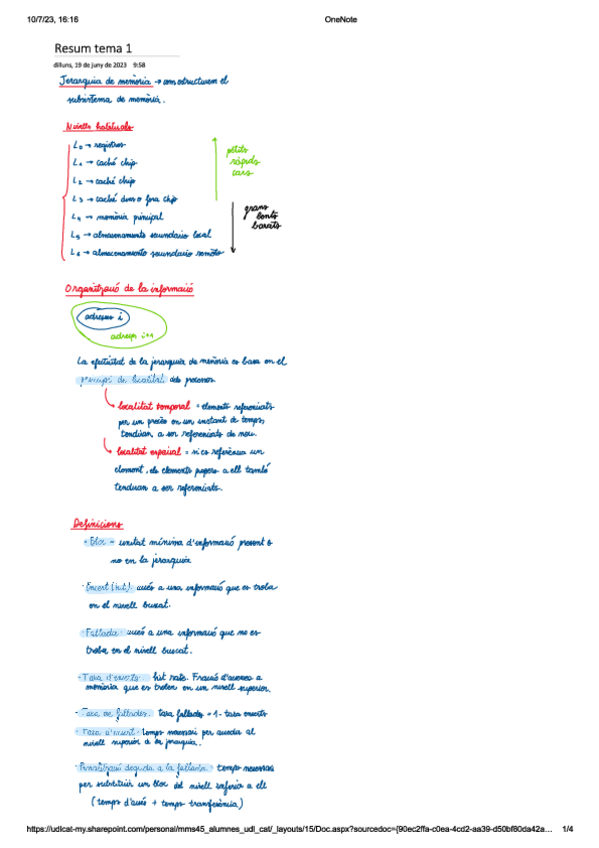 10/7/23, 16:16
OneNote
Resum tema 1
dilluns, 19 de juny de 2023 9:58
Jerarquia de memòria → com estructurem el
subsistema de memòria.
Nivells habituals
L0 → registres
L1 → caché chip
L2 → caché chip
L3 → caché dins o fora chip
L4 → memòria principal
L5 → almacenamiento secundario local
L6 → almacenamiento secundario remoto
petits
ràpids
cars
grans
lents
barats
Organització de la informació
adreces i
adreces i+1
La efectivitat de la jerarquia de memòria es basa en el
principi de localitat dels processos
localitat temporal = elements referenciats
per un procés en un instant de temps,
tendiran a ser referenciats de nou.
localitat espaial = si es referència un
element, els elements propers a ell també
tendiran a ser referenciats.
Definicions
· Bloc = unitat mínima d'informació present o
no en la jerarquia
· Encert (hit): accés a una informació que es troba
en el nivell buscat.
· Fallada: accés a una informació que no es
troba en el nivell buscat.
· Tasa d'encerts: hit rate. Fracció d'accesos a
memòria que es troben en un nivell superior.
· Tasa de fallades: tasa fallades = 1 - tasa encerts
· Tasa d'encert: temps necessari per accedir al
nivell superior de la jerarquia.
· Penalització deguda a la fallada: temps necessari
per substituir un bloc del nivell inferior a ell
(temps d'accés + temps transferència)
https://udlcat-my.sharepoint.com/personal/mms45_alumnes_udl_cat/_layouts/15/Doc.aspx?sourcedoc={90ec2ffa-c0ea-4cd2-aa39-d50bf80da42a…
1/4